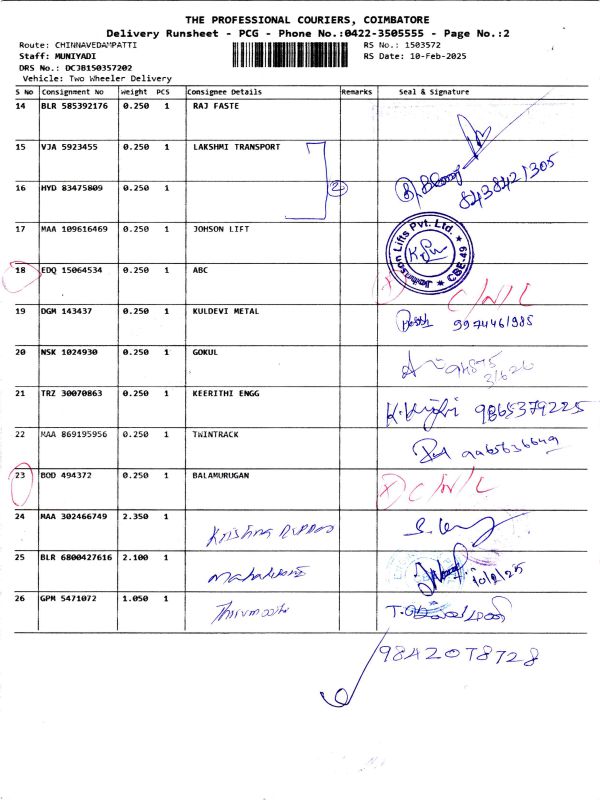 THE PROFESSIONAL COURIERS, COIMBATORE
Delivery Runsheet - PCG - Phone No.:0422-3505555 - Page No.:2
Route: CHINNAVEDAMPATTI RS No.: 1503572
Staff: MUNIYADI RS Date: 10-Feb-2025
DRS No.: DCJB150357202
Vehicle: Two Wheeler Delivery
S No Consignment No Weight PCS Consignee Details Remarks Seal & Signature
14 BLR 585392176 0.250 1 RAJ FASTE
15 VJA 5923455 0.250 1 LAKSHMI TRANSPORT
16 HYD 83475809 0.250 1 2 8438421305
17 MAA 109616469 0.250 1 JOHSON LIFT Johnson Lifts Pvt. Ltd. CBE-49
18 EDQ 15064534 0.250 1 ABC C/N/L
19 DGM 143437 0.250 1 KULDEVI METAL 9974461985
20 NSK 1024930 0.250 1 GOKUL
21 TRZ 30070863 0.250 1 KEERITHI ENGG 9865379225
22 MAA 869195956 0.250 1 TWINTRACK 9965636649
23 BOD 494372 0.250 1 BALAMURUGAN C/N/L
24 MAA 302466749 2.350 1 Krishna
25 BLR 6800427616 2.100 1 10/2/25
26 GPM 5471072 1.050 1
9842078728